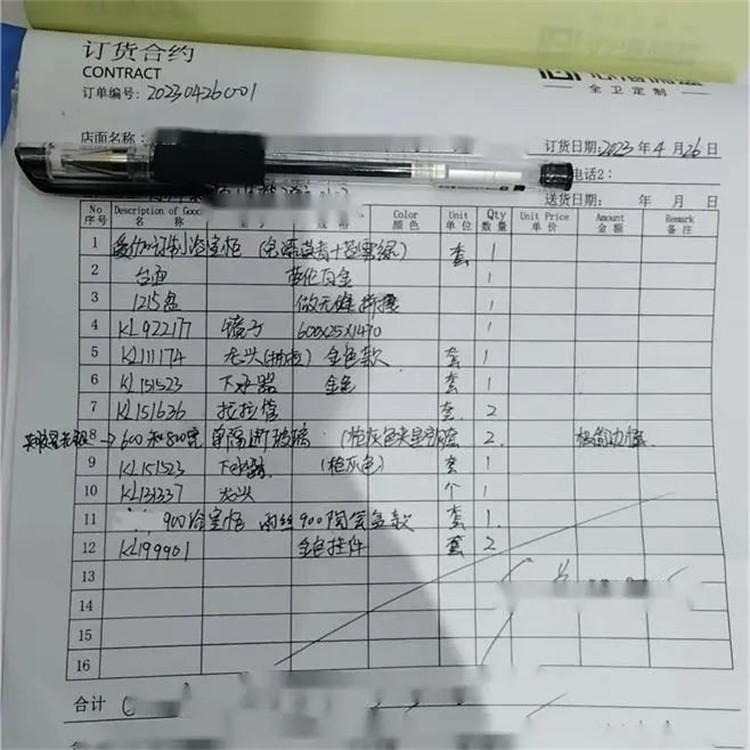 订货合约
CONTRACT
全卫定制
订单编号: 20230426001
店面名称:
订货日期: 2023 年 4 月 26 日
电话2:
送货日期: 年 月 日
No 序号 Description of Goo 名 称 Color 颜色 Unit 单位 Qty 数量 Unit Price 单价 Amount 金额 Remark 备注
1 订制浴室柜 套 1
2 台面 1
3 1215盆 做无缝拼接 1
4 KL922177 镜子 600x25x1470 1
5 KL111174 龙头 金色款 套 1
6 KL151523 下水器 金色 套 1
7 KL151636 拉拉管 套 2
8 600和800宽 单隔断玻璃 (枪灰色 套 2
9 KL151523 下水器 (枪灰色) 套 1
10 KL131337 龙头 个 1
11 900浴室柜 900陶瓷盆款 套 1
12 KL199901 金色挂件 套 2
13
14
15
16
合计